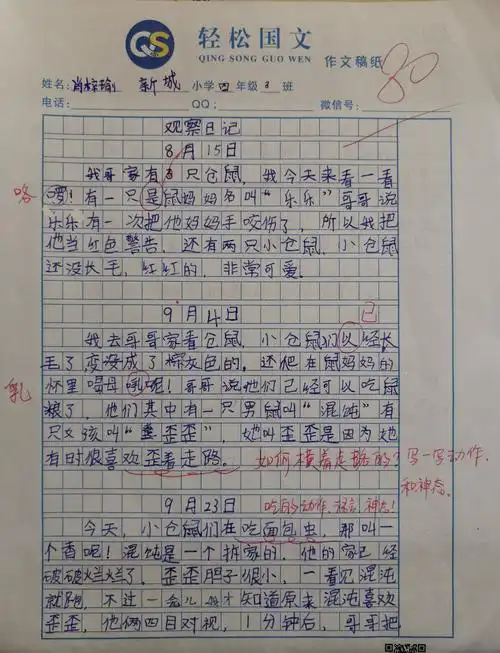 轻松国文
QING SONG GUO WEN
作文稿纸
80
姓名：肖梓瑜 新城 小学四年级3班
电话： QQ： 微信号：
观察日记
8月15日
我哥家有3只仓鼠，我今天来看一看
咯
啰！有一只是鼠妈妈名叫“乐乐”哥哥说
乐乐有一次把他妈妈手咬伤了，所以我把
他当红色警告，还有两只小仓鼠，小仓鼠
还没长毛，红红的，非常可爱。
9月4日
已
我去哥哥家看仓鼠，小仓鼠们以经长
毛了变成了棕灰色的，还爬在鼠妈妈的
乳
怀里喝母吼呢！哥哥说他们已经可以吃鼠
粮了，他们其中有一只男鼠叫“混沌”有
只女孩叫“歪歪”，她叫歪歪是因为她
有时很喜欢歪着走路。
如何横着走路的？写一写动作
和神态。
9月23日
吃的动作、神态！
今天，小仓鼠们在吃面包虫，那叫一
个香呢！混沌是一个拆家的，他的家已经
破破烂烂了。歪歪胆子很小，一看见混沌
就跑，不过一会儿我才知道原来混沌喜欢
歪歪，他俩四目对视，1分钟后，哥哥把